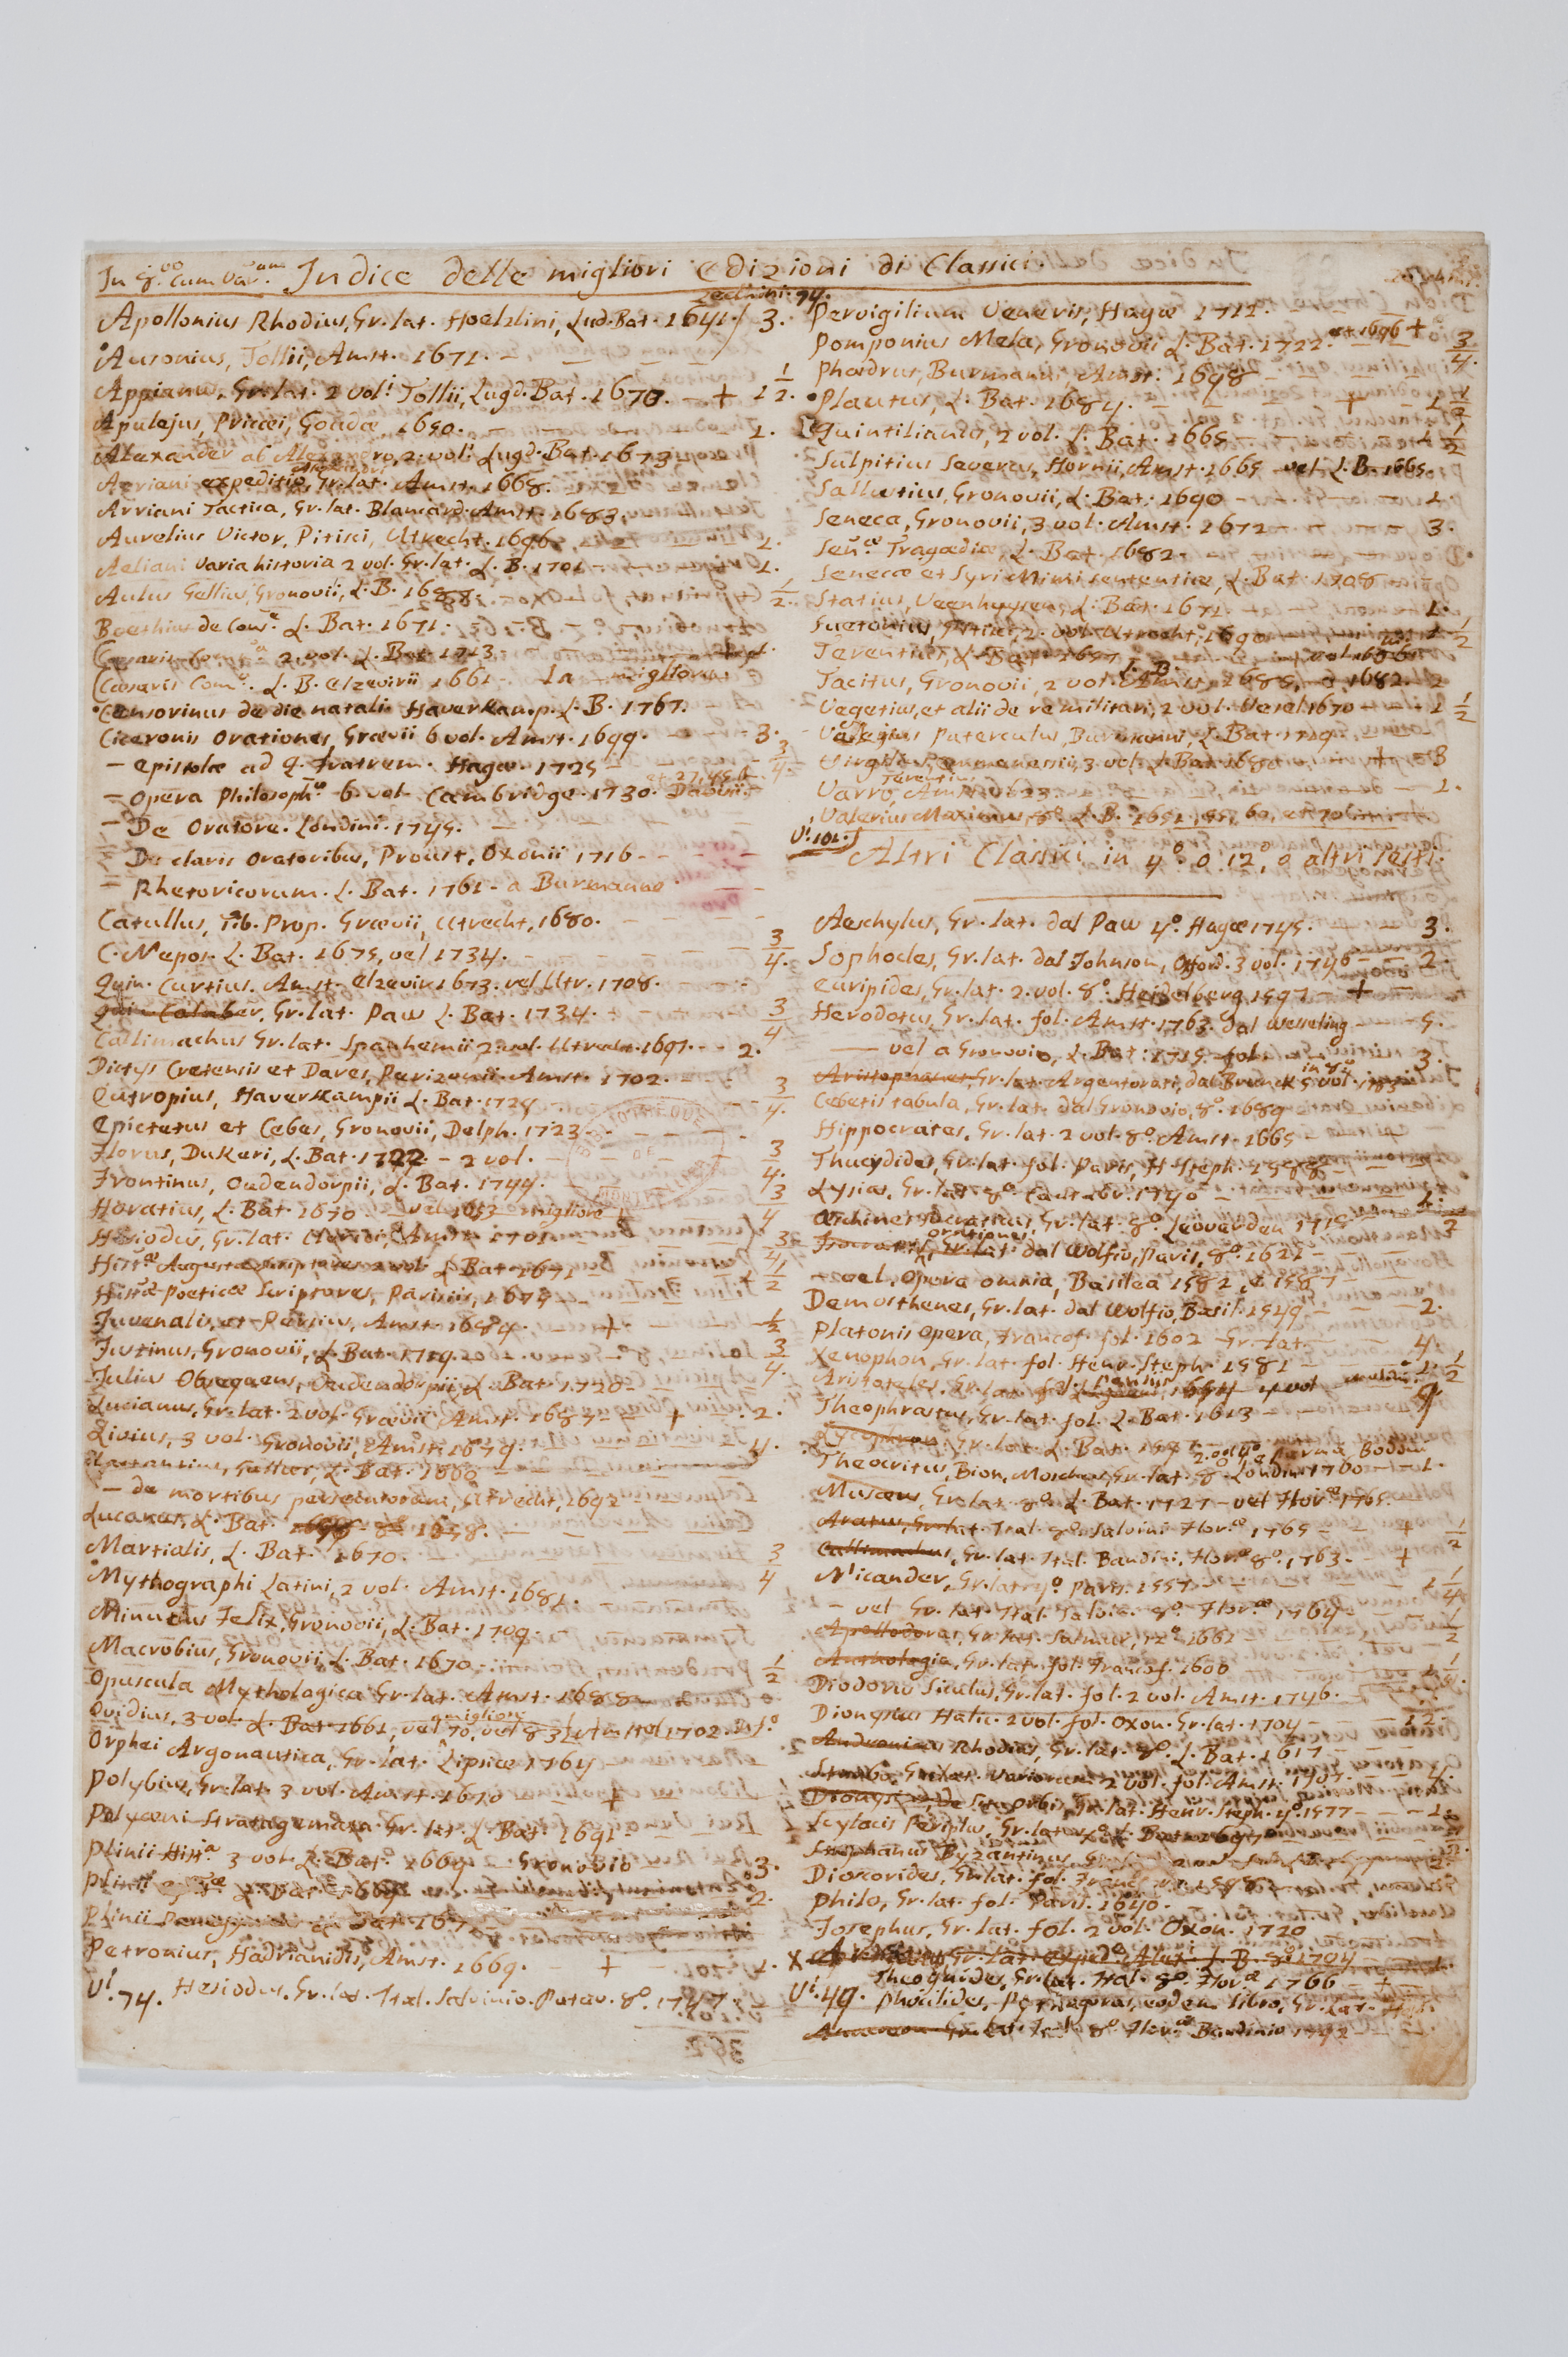 In 8.vo Cum Var.um Indice delle migliori Edizioni di Classici.
Zecchini. 94.
Apollonius Rhodius, Gr. lat. Hoelzlini, Lud. Bat. 1641. 3.
Ausonius, Tollii, Amst. 1671.
Appianus, Gr. lat. 2 vol.i Tollii, Lugd. Bat. 1670. — + 1 1/2.
Apulejus, Pricæi, Goudæ 1650. 1.
Alexander ab Alexandro, 2. vol. Lugd. Bat. 1673
Arriani expeditio, Gr. lat. Amst. 1668.
Arriani Tactica, Gr. lat. Blancard. Amst. 1683.
Aurelius Victor, Pitisci, Utrecht. 1696 1.
Aeliani varia historia 2 vol. Gr. lat. L. B. 1701 1.
Aulus Gellius, Gronovii, L. B. 1688. 1/2.
Boethius de Cons.e L. Bat. 1671.
2. vol. L. Bat. 1713
Cæsaris Com. L. B. Elzevirii 1661 — La migliore
Censorinus de die natali Haverkamp. L. B. 1767.
Ciceronis Orationes, Grævii 6 vol. Amst. 1699. 3.
— Epistolæ ad Q. Fratrem. Hagæ. 1725 — 3/4.
— Opera Philosoph.a 6. vol. Cambridge. 1730. Davisii.
— De Oratore. Londini. 1745.
— De claris Oratoribus, Proust, Oxonii 1716 - - -
— Rhetoricorum. L. Bat. 1761 - a Burmanno
Catullus, Tib. Prop. Grævii, Utrecht, 1680.
C. Nepos. L. Bat. 1675, vel 1734. 3/4.
Quin. Curtius. Amst. Elzevir. 1673. vel Utr. 1708.
Qui. Calaber, Gr. lat. Paw L. Bat. 1734. 3/4
Callimachus Gr. lat. Spanhemii 2 vol. Utrecht. 1697. - - 2.
Dictys Cretensis et Dares, Perizonii. Amst. 1702.
Eutropius, Haverkampii L. Bat. 1729 3/4.
Epictetus et Cebes, Gronovii, Delph. 1723
Florus, Dukeri, L. Bat. 1722. - 2 vol. 3/4.
Frontinus, Oudendorpii, L. Bat. 1779.
Horatius, L. Bat. 1670 vel 1653 migliore 3/4
Hesiodus, Gr. lat. Clerici, Amst. 1701
Hist.æ Augustæ Scriptores 2 vol. L Bat 1671
Hist.æ Poeticæ Scriptores, Parisiis, 1675
Juvenalis, et Persius, Amst. 1684. — + 1/2
Justinus, Gronovii, L. Bat. 1719. 3/4.
Julius Obsequens, Oudendorpii, L. Bat. 1720
Lucianus, Gr. lat. 2 vol. Grævii Amst. 1687 — + 2.
Livius, 3 vol. Gronovii, Amst. 1679. 4.
Lactantius, Gallæi, L. Bat. 1660
— de mortibus persecutorum, Utrecht, 1692
Lucanus, L. Bat. 1658.
Martialis, L. Bat. 1670. 3/4
Mythographi Latini, 2 vol. Amst. 1681.
Minucius Felix, Gronovii, L. Bat. 1709.
Macrobius, Gronovii, L. Bat. 1670 1/2
Opuscula Mythologica Gr. lat. Amst. 1688
Ovidius, 3 vol. L. Bat. 1661, vel migliore 70, vel 83 1702.
Orphei Argonautica, Gr. lat. Lipsiæ 1764
Polybius, Gr. lat. 3 vol. Amst. 1670 +
Polyæni Stratagemata Gr. lat. L. Bat. 1691
Plinii Hist.a 3 vol. L. Bat. 1669 — Gronovio 3.
Plinii L. Bat. 2.
Plinii
Petronius, Hadrianidis, Amst. 1669. — +
V.i 74. Hesiodus. Gr. lat. Ital. Salvinio. Patav. 8.o 1747.
Pervigilium Veneris, Hagæ 1712.
Pomponius Mela, Gronovii L. Bat. 1722. et 1696 + 3/4.
Phædrus, Burmanni, Amst. 1698
Plautus, L. Bat. 1684. — + 1 1/2
Quintilianus, 2 vol. L. Bat. 1665 1 1/2
Sulpitius Severus, Hornii, Amst. 1665 vel L. B. 1665.
Sallustius, Gronovii, L. Bat. 1690 1.
Seneca, Gronovii, 3 vol. Amst. 1672 3.
Sen.æ Tragœdiæ, L. Bat. 1682
Senecæ et Syri Mimi sententiæ, L. Bat. 1708
Statius, Veenhuysen, L. Bat. 1671 1.
Suetonius, Pitisci, 2. vol. Utrecht, 1690 1/2
Terentius, L. Bat. 1657
Tacitus, Gronovii, 2 vol. L. B. 2
Vegetius, et alii de re militari, 2 vol. Vesel 1670 1 1/2
Paterculus, Burmanni, L. Bat. 1719.
Virgilius, Emmenessii, 3 vol. L. Bat. 1680 + 3
Varro, Amst. 1623 1.
Valerius Maximus, 8.o L. B. 1651
V.i 101.
Altri Classici in 4.o o 12.o, o altri sesti.
Aeschylus, Gr. lat. dal Paw 4.o Hagæ 1745. 3.
Sophocles, Gr. lat. dal Johnson, Oxford. 3 vol. 1746 2.
Euripides, Gr. lat. 2. vol. 8.o Heidelberg 1597 — +
Herodotus, Gr. lat. fol. Amst. 1763. dal Wesseling 5.
— vel a Gronovio, L. Bat. 1715. fol. 3.
Aristophanes, Gr. lat. Argentorati, dal Brunck 5 vol. in 4.o
Cebetis tabula, Gr. lat. dal Gronovio, 8.o 1689
Hippocrates, Gr. lat. 2 vol. 8.o Amst. 1665
Thucydides, Gr. lat. fol. Paris, H. Steph. 1588
Lysias, Gr. lat. 8.o Cantabr. 1740 1.
Æschines Socraticus, Gr. lat. 8.o Leovarden 1718
Isocratis, Orationes Gr. lat. dal Wolfio, Paris, 8.o 1621
— vel, Opera omnia, Basilea 1582, e 1587
Demosthenes, Gr. lat. dal Wolfio, Basil. 1549 2.
Platonis Opera, Francof. fol. 1602 Gr. lat. 4.
Xenophon, Gr. lat. fol. Henr. Steph. 1581 1 1/2
Aristoteles, Gr. lat. fol. Parisiis 1654 4 vol
Theophrastus, Gr. lat. fol. L. Bat. 1613
Lycophron, Gr. lat. L. Bat. 1597
Theocritus, Bion, Moschus, Gr. lat. 8.o Londini 1760 1.
Musæus, Gr. lat. 8.o L. Bat. 1727 — vel Flor.æ 1765.
Aratus, Gr. lat. Ital. 8.o Salvini Flor.æ 1765 + 1/2
Callimachus, Gr. lat. Ital. Bandini, Flor.æ 8.o 1763 — +
Nicander, Gr. lat. 4.o Paris. 1557
— vel Gr. lat. Ital. Salvin. 8.o Flor.æ 1764
Apollodorus, Gr. lat. Salmur, 12.o 1661
Anthologia, Gr. lat. fol. Francof. 1600
Diodorus Siculus, Gr. lat. fol. 2 vol. Amst. 1746.
Dionysius Halic. 2 vol. fol. Oxon. Gr. lat. 1704 12.
Andronicus Rhodius, Gr. lat. 8.o L. Bat. 1617
Strabo, Gr. lat. Variorum 2 vol. fol. Amst. 1707. 4.
Dionysius, de Situ Orbis, Gr. lat. Henr. Steph. 4.o 1577 1.
Scylacis Periplus, Gr. lat. L. Bat. 1697
Stephanus Byzantinus
Dioscorides, Gr. lat. fol. 1598
Philo, Gr. lat. fol. Paris. 1640.
Josephus, Gr. lat. fol. 2 vol. Oxon. 1720
X Arrianus Gr. lat. exped.o Alex.i L. B. 8.o 1704
Theognides, Gr. lat. Ital. 8.o Flor.æ 1766 — +
V.i 49. Phocilides, Pythagoras, eodem libro, Gr. lat. Ital.
Anacreon Gr. lat. Ital. 8.o Flor.æ Bandinio 1742